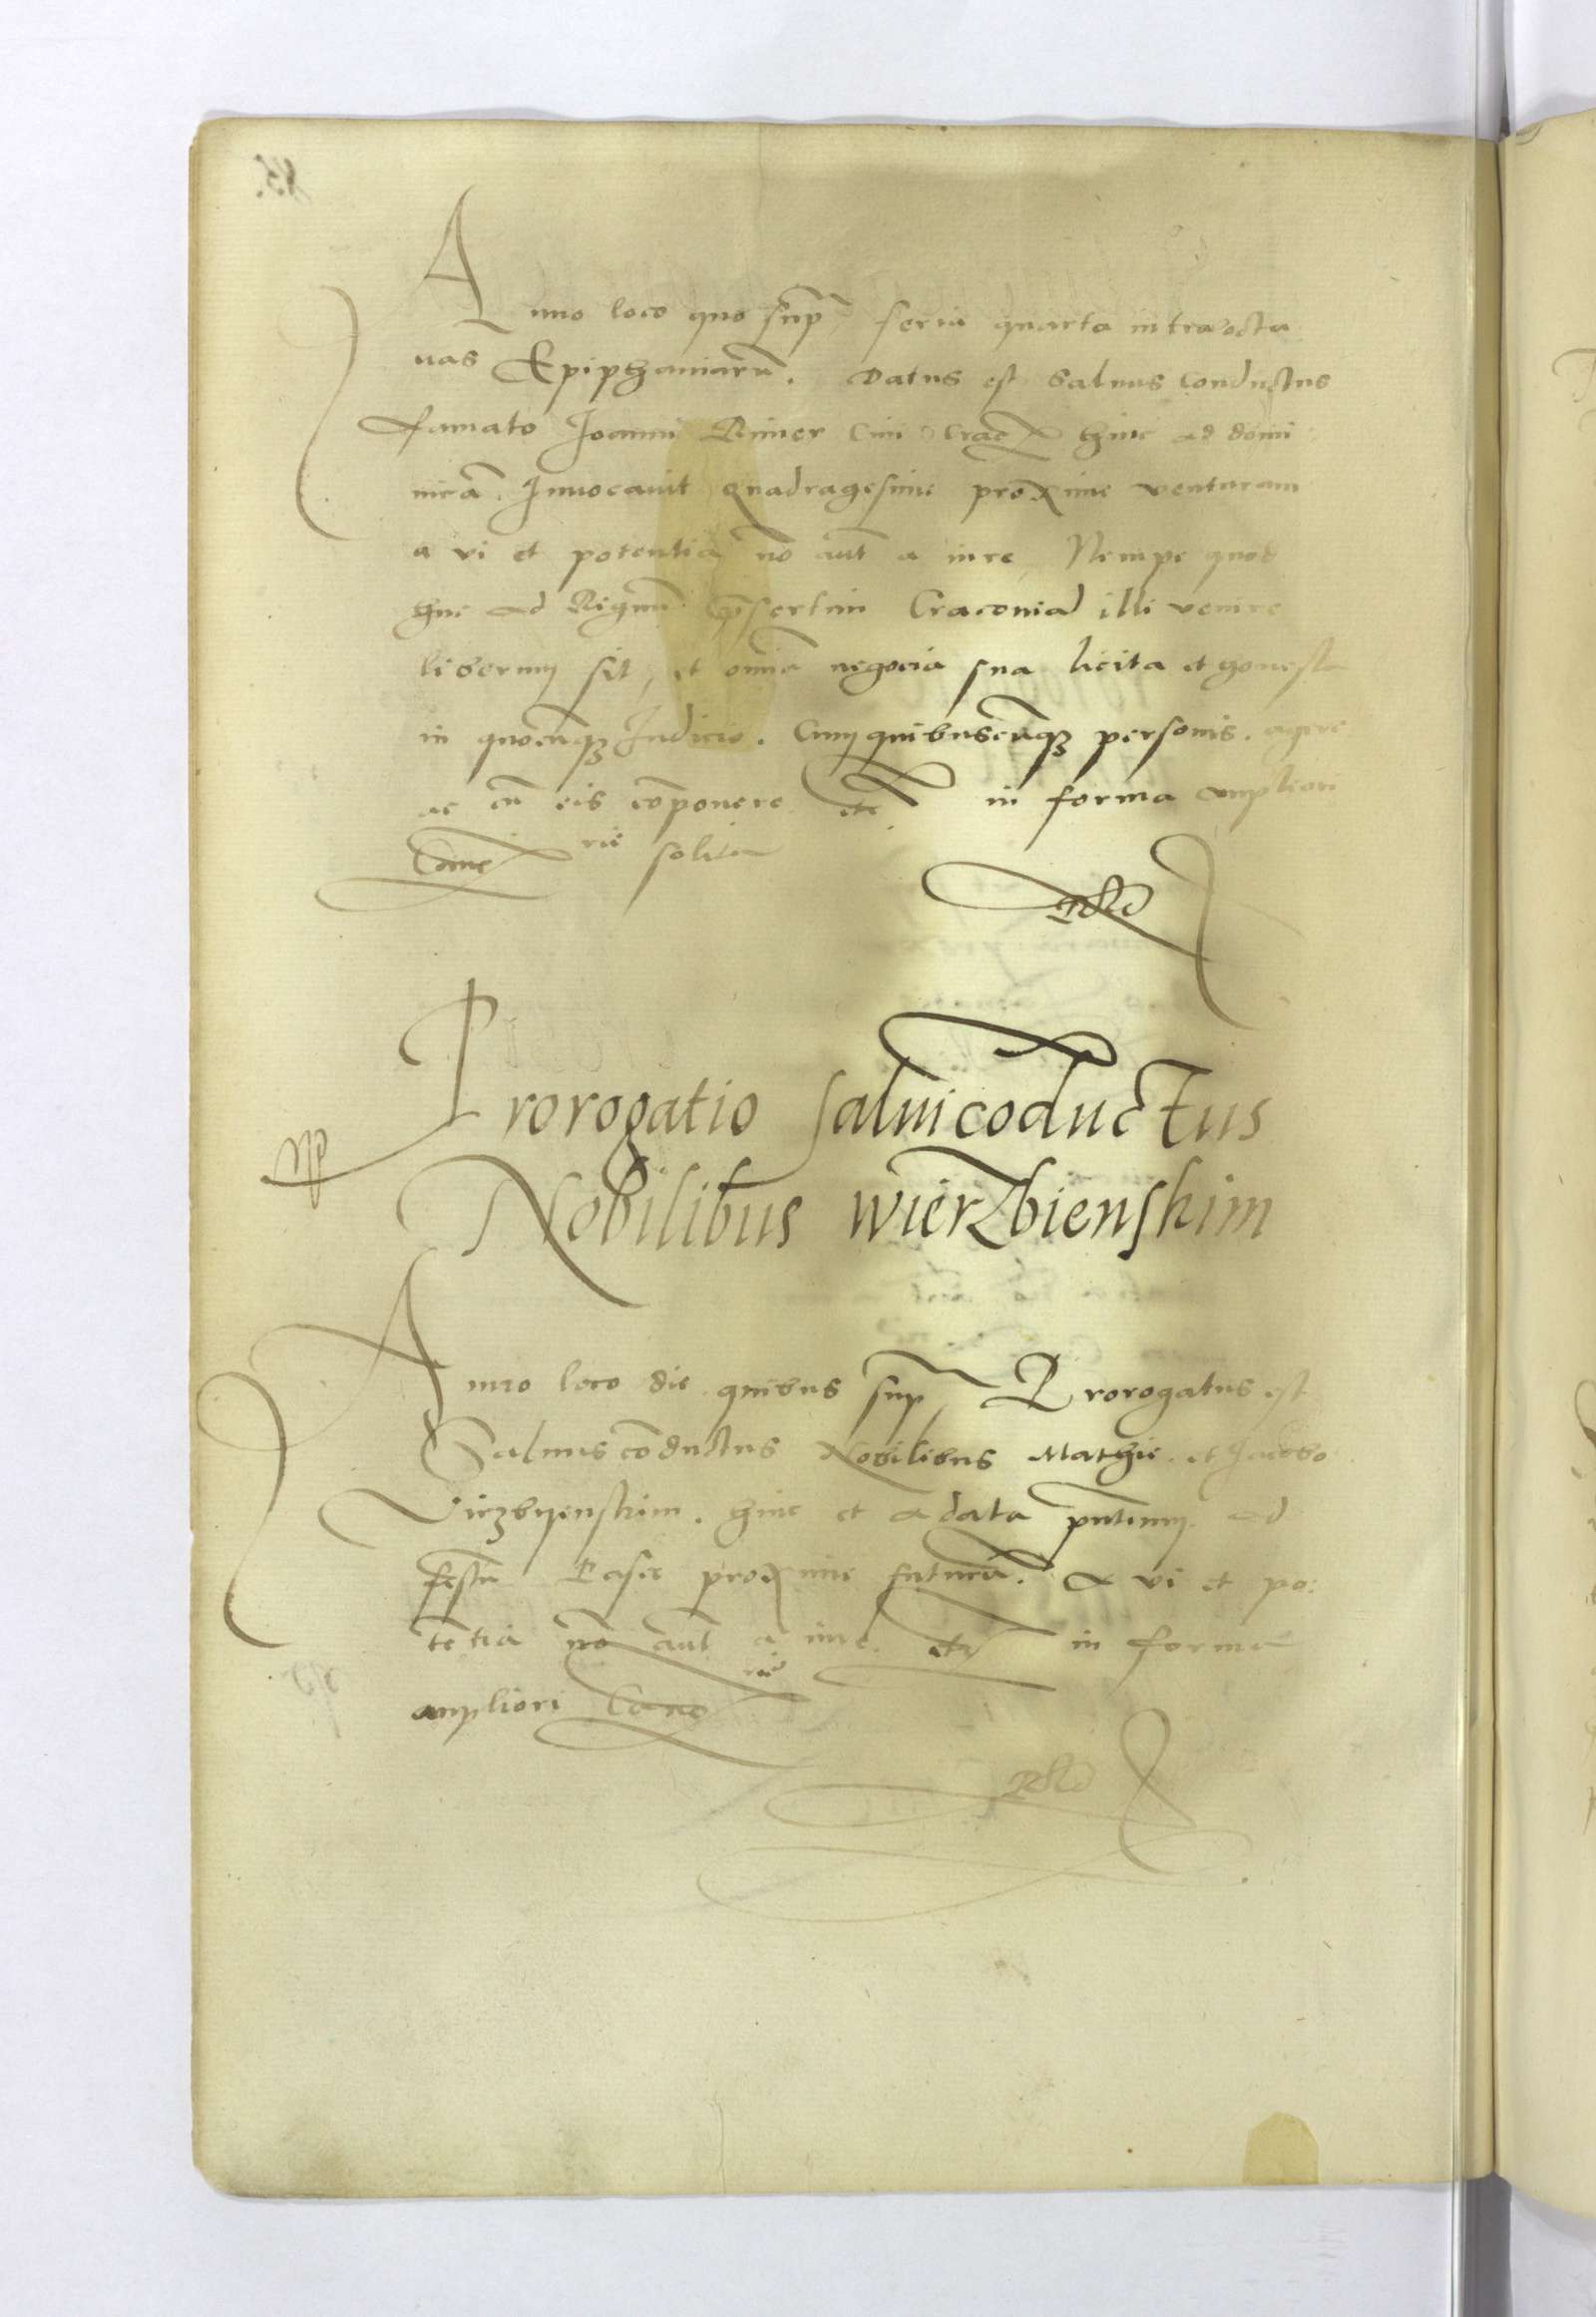 Anno loco quo sup feria quarta intra octa
uas Epiphaniarũ. Datus est saluus conductus
famato Joanni Rimer Ciui Crac hinc ad domi
nicã Inuocauit quadragesime proxime venturam
a vi et potentia nõ aut̃ a iure, Nempe quod
huc ad Regnũ p̃sertim Cracouiã illi venire
liberum sit, et omnia negocia sua licita et honesta
in quocũq; Judicio. Cum quibuscũq; personis. agere
ac cũ eis cõponere etc in forma ampliori
Canc rie solita
Prorogatio saluicõductus
Nobilibus wierzbienskim
Anno loco die quibus sup Prorogatus est
Saluus cõductus Nobilibus Mathie et Jacobo
Vierzbyenskim. hinc et a data pñtium ad
festũ Pasce proxime futurũ. a vi et po:
tẽtia nõ aut̃ a iure. etc in forma
ampliori Canc rie